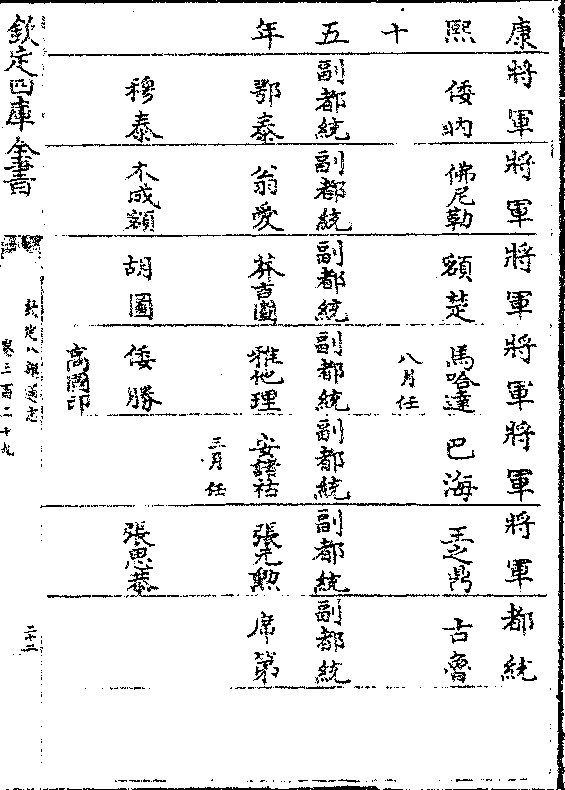 康 將軍 將軍 將軍 將軍 將軍 將軍 都統
熙 倭吶 佛尼勒 額楚 馬哈達 巴海 王之鼎 古魯
十 八月任
五 副都統 副都統 副都統 副都統 副都統 副都統 副都統
年 鄂泰 翁愛 莽吉圖 雅他理 安諸祜 張元勲 席第
三月任
穆泰 木成額 胡圖 倭勝 張思恭
高國印
欽定四庫全書
欽定八旗通志
卷三百二十九
二十二